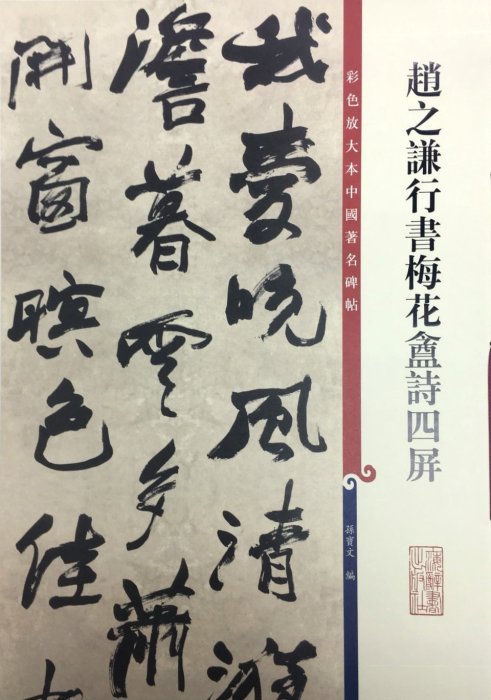 趙之謙行書梅花盦詩四屏
彩色放大本中國著名碑帖
孫寶文 編
我愛晚風清
澹暮雲多蕭
開窗暝色佳
上海辭書出版社